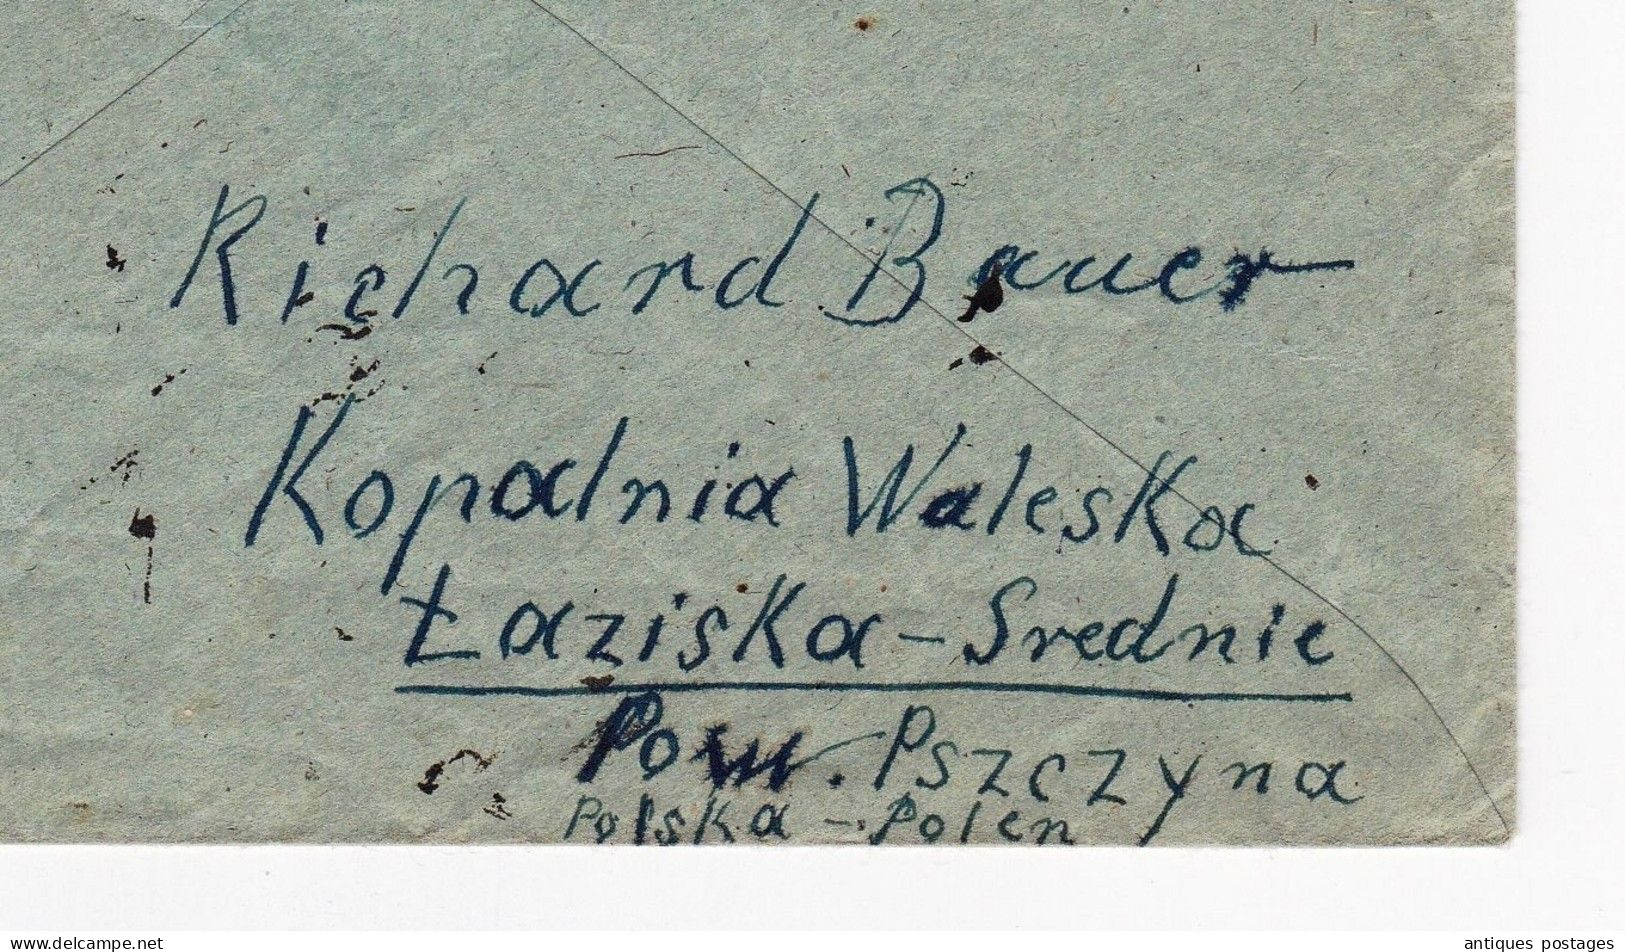 Richard Bauer
Kopalnia Waleska
Łaziska-Srednie
Pow. Pszczyna
Polska - Polen
www.delcampe.net
antiques postages